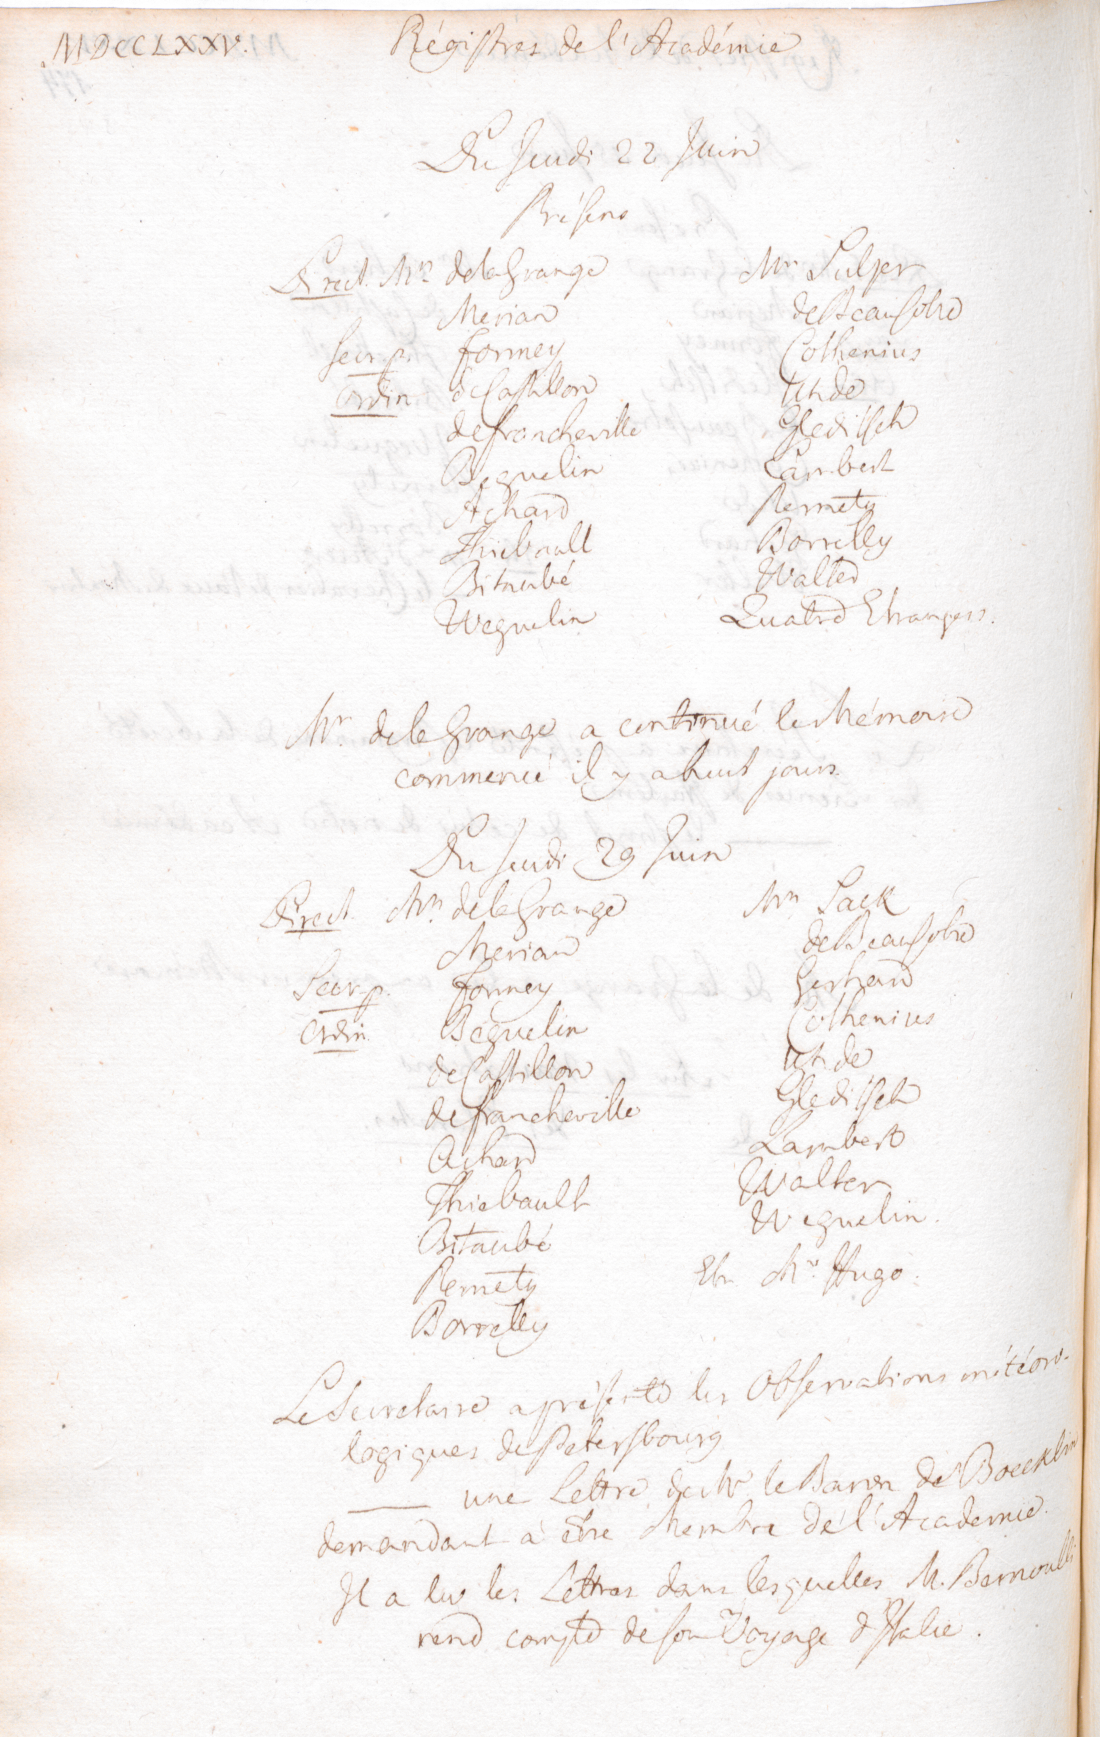 MDCCLXXV.
Régistres de l'Académie
Du Jeudi 22 Juin
Présens
Direct. Mrs. de la Grange
Merian
Secr. p. Formey
Ordin. de Castillon
de Francheville
Beguelin
Achard
Thiebault
Bitaubé
Weguelin
Mrs. Sulzer
de Beausobre
Cothenius
Uhde
Gleditsch
Lambert
Pernety
Borrelly
Walter
Quatre Etrangers.
Mr. de la Grange a continué le Mémoire
commencé il y a huit jours.
Du Jeudi 29 Juin
Direct. Mrs. de la Grange
Merian
Secr. p. Formey
Ordin. Beguelin
de Castillon
de Francheville
Achard
Thiebault
Bitaubé
Pernety
Borrelly
Mrs. Sack
de Beausobre
Gerhard
Cothenius
Uhde
Gleditsch
Lambert
Walter
Weguelin.
Etr. Mr. Hugo.
Le Secretaire a présenté les Observations météoro-
logiques de Petersbourg
——— une Lettre de Mr. le Baron de Boecklin
demandant à être Membre de l'Academie.
Il a lu les Lettres dans lesquelles M. Bernoulli
rend compte de son Voyage d'Italie.